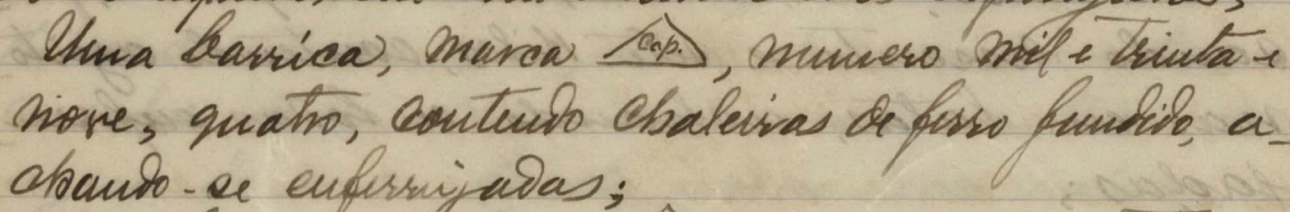 Uma barrica, marca Cap., numero mil e trinta e
nove, quatro, contendo chaleiras de ferro fundido, a-
chando-se enferrujadas;